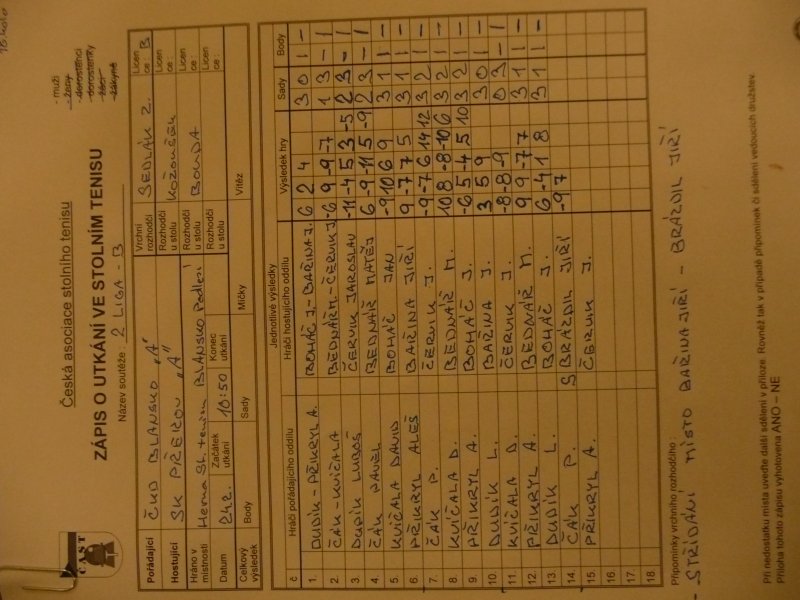 18. kolo
Česká asociace stolního tenisu
ZÁPIS O UTKÁNÍ VE STOLNÍM TENISU
Název soutěže: 2 LIGA - B
- muži
- ženy
- dorostenci
- dorostenky
- žáci
- žákyně
ČAST
Pořádající ČKD BLANSKO "A" Vrchní rozhodčí SEDLÁK Z. Licence: B
Hostující SK PŘEROV "A" Rozhodčí u stolu KOŽOUŠEK Licence:
Hráno v místnosti Herna St. tenisu BLANSKO Podlesí Rozhodčí u stolu BOUDA Licence:
Datum 24.2. Začátek utkání 10:50 Konec utkání Rozhodčí u stolu Licence:
Celkový výsledek Body Sady Míčky Vítěz
Jednotlivé výsledky
č Hráči pořádajícího oddílu Hráči hostujícího oddílu Výsledek hry Sady Body
1. DUDÍK - PŘIKRYL A. BOHÁČ J. - BAŘINA J. 6 2 4 3 0 1 -
2. ČÁK - KVÍČALA BEDNÁŘ M. - ČERVIK J. -6 9 -9 -7 1 3 - 1
3. DUDÍK LUBOŠ ČERVIK JAROSLAV -11 -4 5 3 -5 2 3 - 1
4. ČÁK PAVEL BEDNÁŘ MATĚJ 6 -9 -11 5 -9 2 3 - 1
5. KVÍČALA DAVID BOHÁČ JAN -9 10 6 9 3 1 1 -
6. PŘIKRYL ALEŠ BAŘINA JIŘÍ 9 -7 7 5 3 1 1 -
7. ČÁK P. ČERVIK J. -9 -7 6 14 12 3 2 1 -
8. KVÍČALA D. BEDNÁŘ M. 10 8 -8 -10 6 3 2 1 -
9. PŘIKRYL A. BOHÁČ J. -6 5 -4 5 10 3 2 1 -
10. DUDÍK L. BAŘINA J. 3 5 9 3 0 1 -
11. KVÍČALA D. ČERVIK J. -8 -8 -9 0 3 - 1
12. PŘIKRYL A. BEDNÁŘ M. 9 9 -7 7 3 1 1 -
13. DUDÍK L. BOHÁČ J. 6 -4 1 8 3 1 1 -
14. ČÁK P. S BRÁZDIL JIŘÍ -9 7
15. PŘIKRYL A. ČERVIK J.
16.
17.
18.
Připomínky vrchního rozhodčího
- STŘÍDÁNÍ MÍSTO BAŘINA JIŘÍ - BRÁZDIL JIŘÍ
Při nedostatku místa uveďte další sdělení v příloze. Rovněž tak v případě připomínek či sdělení vedoucích družstev.
Příloha tohoto zápisu vyhotovena ANO – NE